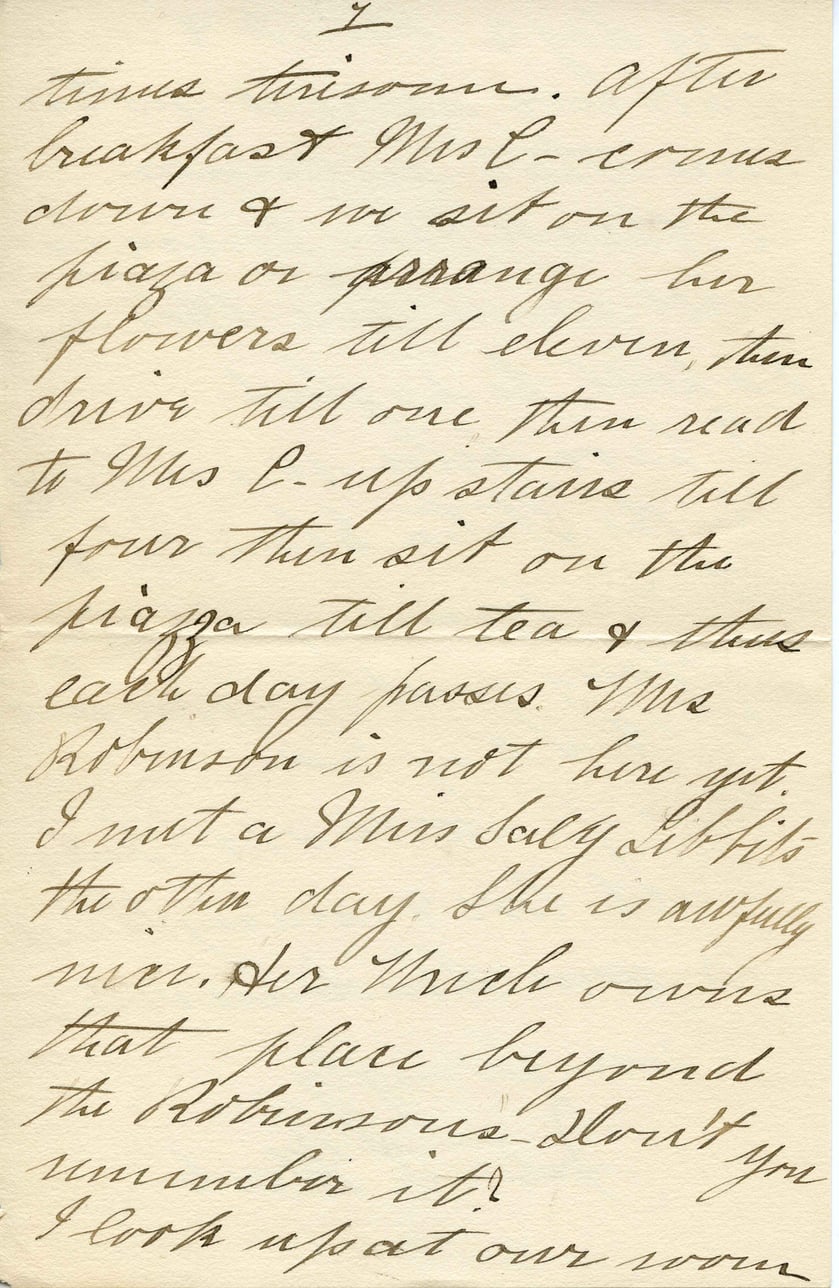 7
times tiresome. After
breakfast Mrs C- comes
down & we sit on the
piazza or arrange her
flowers till eleven, then
drive till one then read
to Mrs C- up stairs till
four then sit on the
piazza till tea & thus
each day passes. Mrs
Robinson is not here yet.
I met a Miss Saly Libbits
the other day. She is awfully
nice. Her Uncle owns
that place beyond
the Robinsons - Don't you
remember it?
I look up at our room